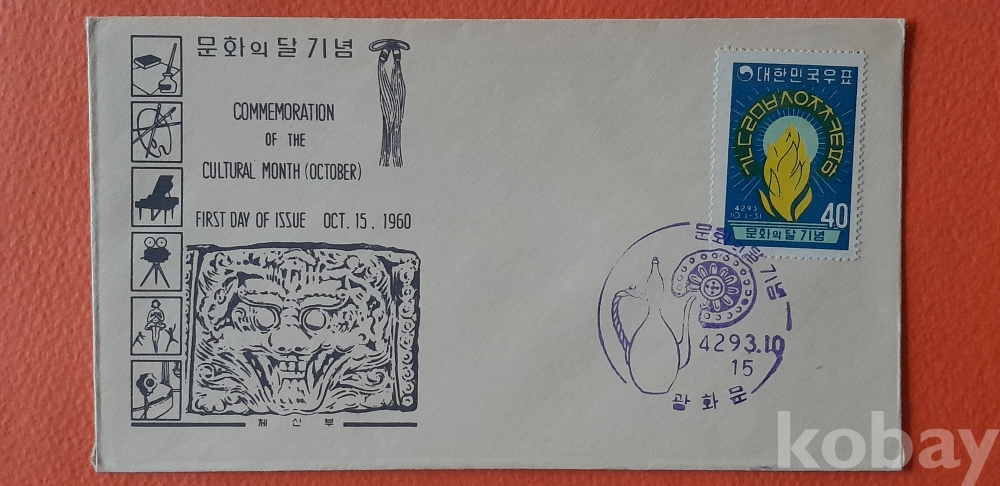 문화의 달 기념
COMMEMORATION
OF THE
CULTURAL MONTH (OCTOBER)
FIRST DAY OF ISSUE OCT. 15. 1960
체 신 부
대한민국우표
ㄱㄴㄷㄹㅁㅂㅅㅇㅈㅊㅋㅌㅍㅎ
4293
10.1-31
40
문화의 달 기념
문화의 달 기념
4293.10
15
광 화 문
kobay